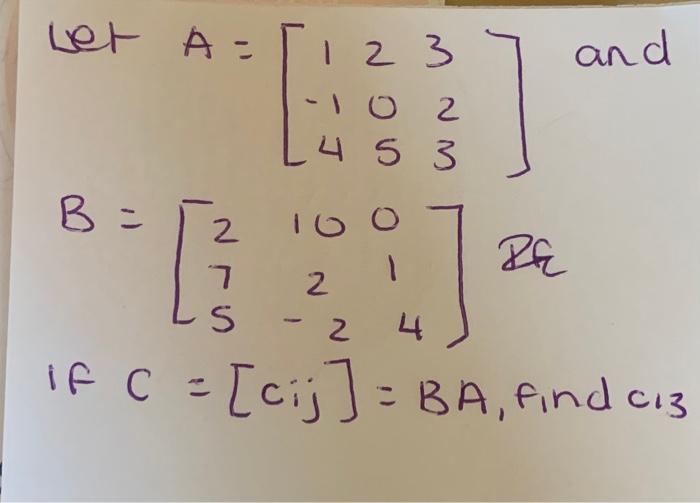 Let A = [ 1 2 3 ] and
-1 0 2
4 5 3
B = [ 2 10 0 ]
7 2 1
5 -2 4
if C = [cij] = BA, find c13